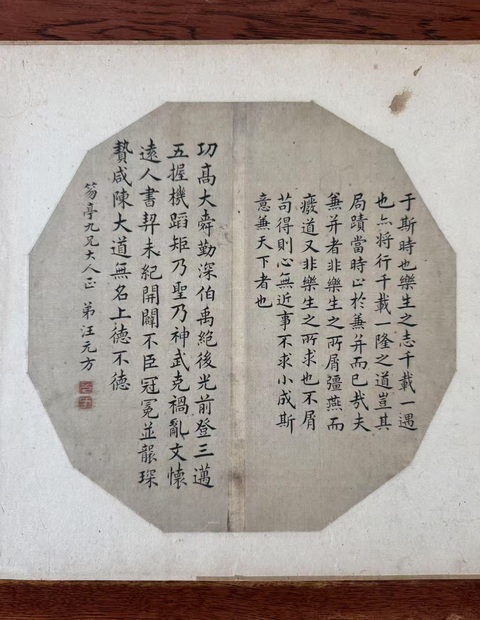 于斯時也樂生之志千載一遇
也亦將行千載一隆之道豈其
局蹟當時止於兼并而已哉夫
兼并者非樂生之所屑彊燕而
癈道又非樂生之所求也不屑
苟得則心無近事不求小成斯
意兼天下者也
功高大舜勤深伯禹絶後光前登三邁
五握機蹈矩乃聖乃神武克禍亂文懷
遠人書契未紀開闢不臣冠冕並襲琛
贄咸陳大道無名上德不德
笏亭九兄大人正 弟汪元方